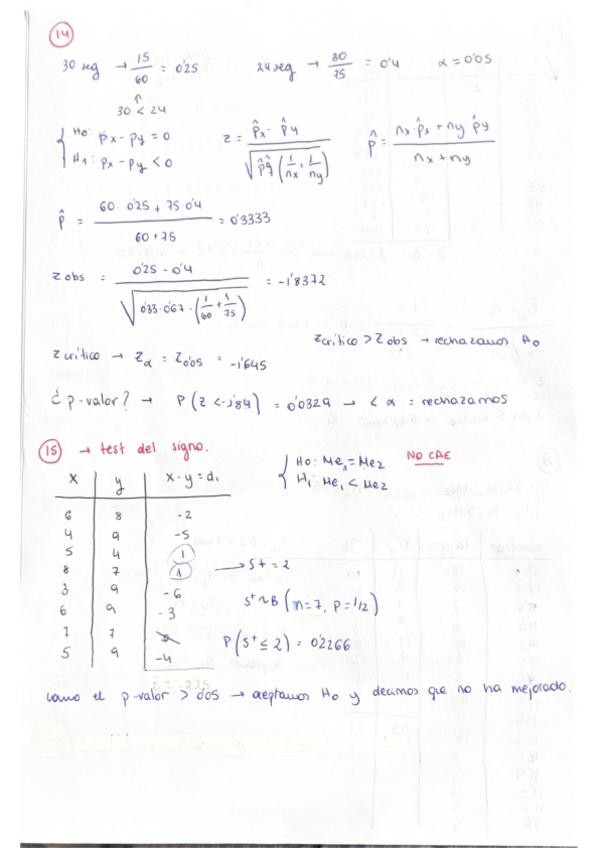 14
30 seg → 15/60 = 0'25   24 seg → 30/75 = 0'4   α = 0'05
30 < 24
H0: px - py = 0
H1: px - py < 0
z = (p̂x - p̂y) / √(p̂q̂ (1/nx + 1/ny))   p̂ = (nx·p̂x + ny p̂y) / (nx + ny)
p̂ = (60·0'25 + 75 0'4) / (60+75) = 0'3333
z obs = (0'25 - 0'4) / √(0'33·0'67·(1/60 + 1/75)) = -1'8372
z crítico > z obs → rechazamos H0
z crítico → zα = z0'05 = -1'645
¿p-valor? → P(z < -1'84) = 0'0329 → < α = rechazamos
15 → test del signo.
H0: Me1 = Me2   NO CAE
H1: Me1 < Me2
x   y   x - y = di
6   8   -2
4   9   -5
5   4   1
8   7   1   → S+ = 2
3   9   -6
6   9   -3   S+ ~ B (n=7, p=1/2)
7   7   0
5   9   -4   P(S+ ≤ 2) = 0'2266
como el p-valor > 0'05 → aceptamos H0 y decimos que no ha mejorado.
...